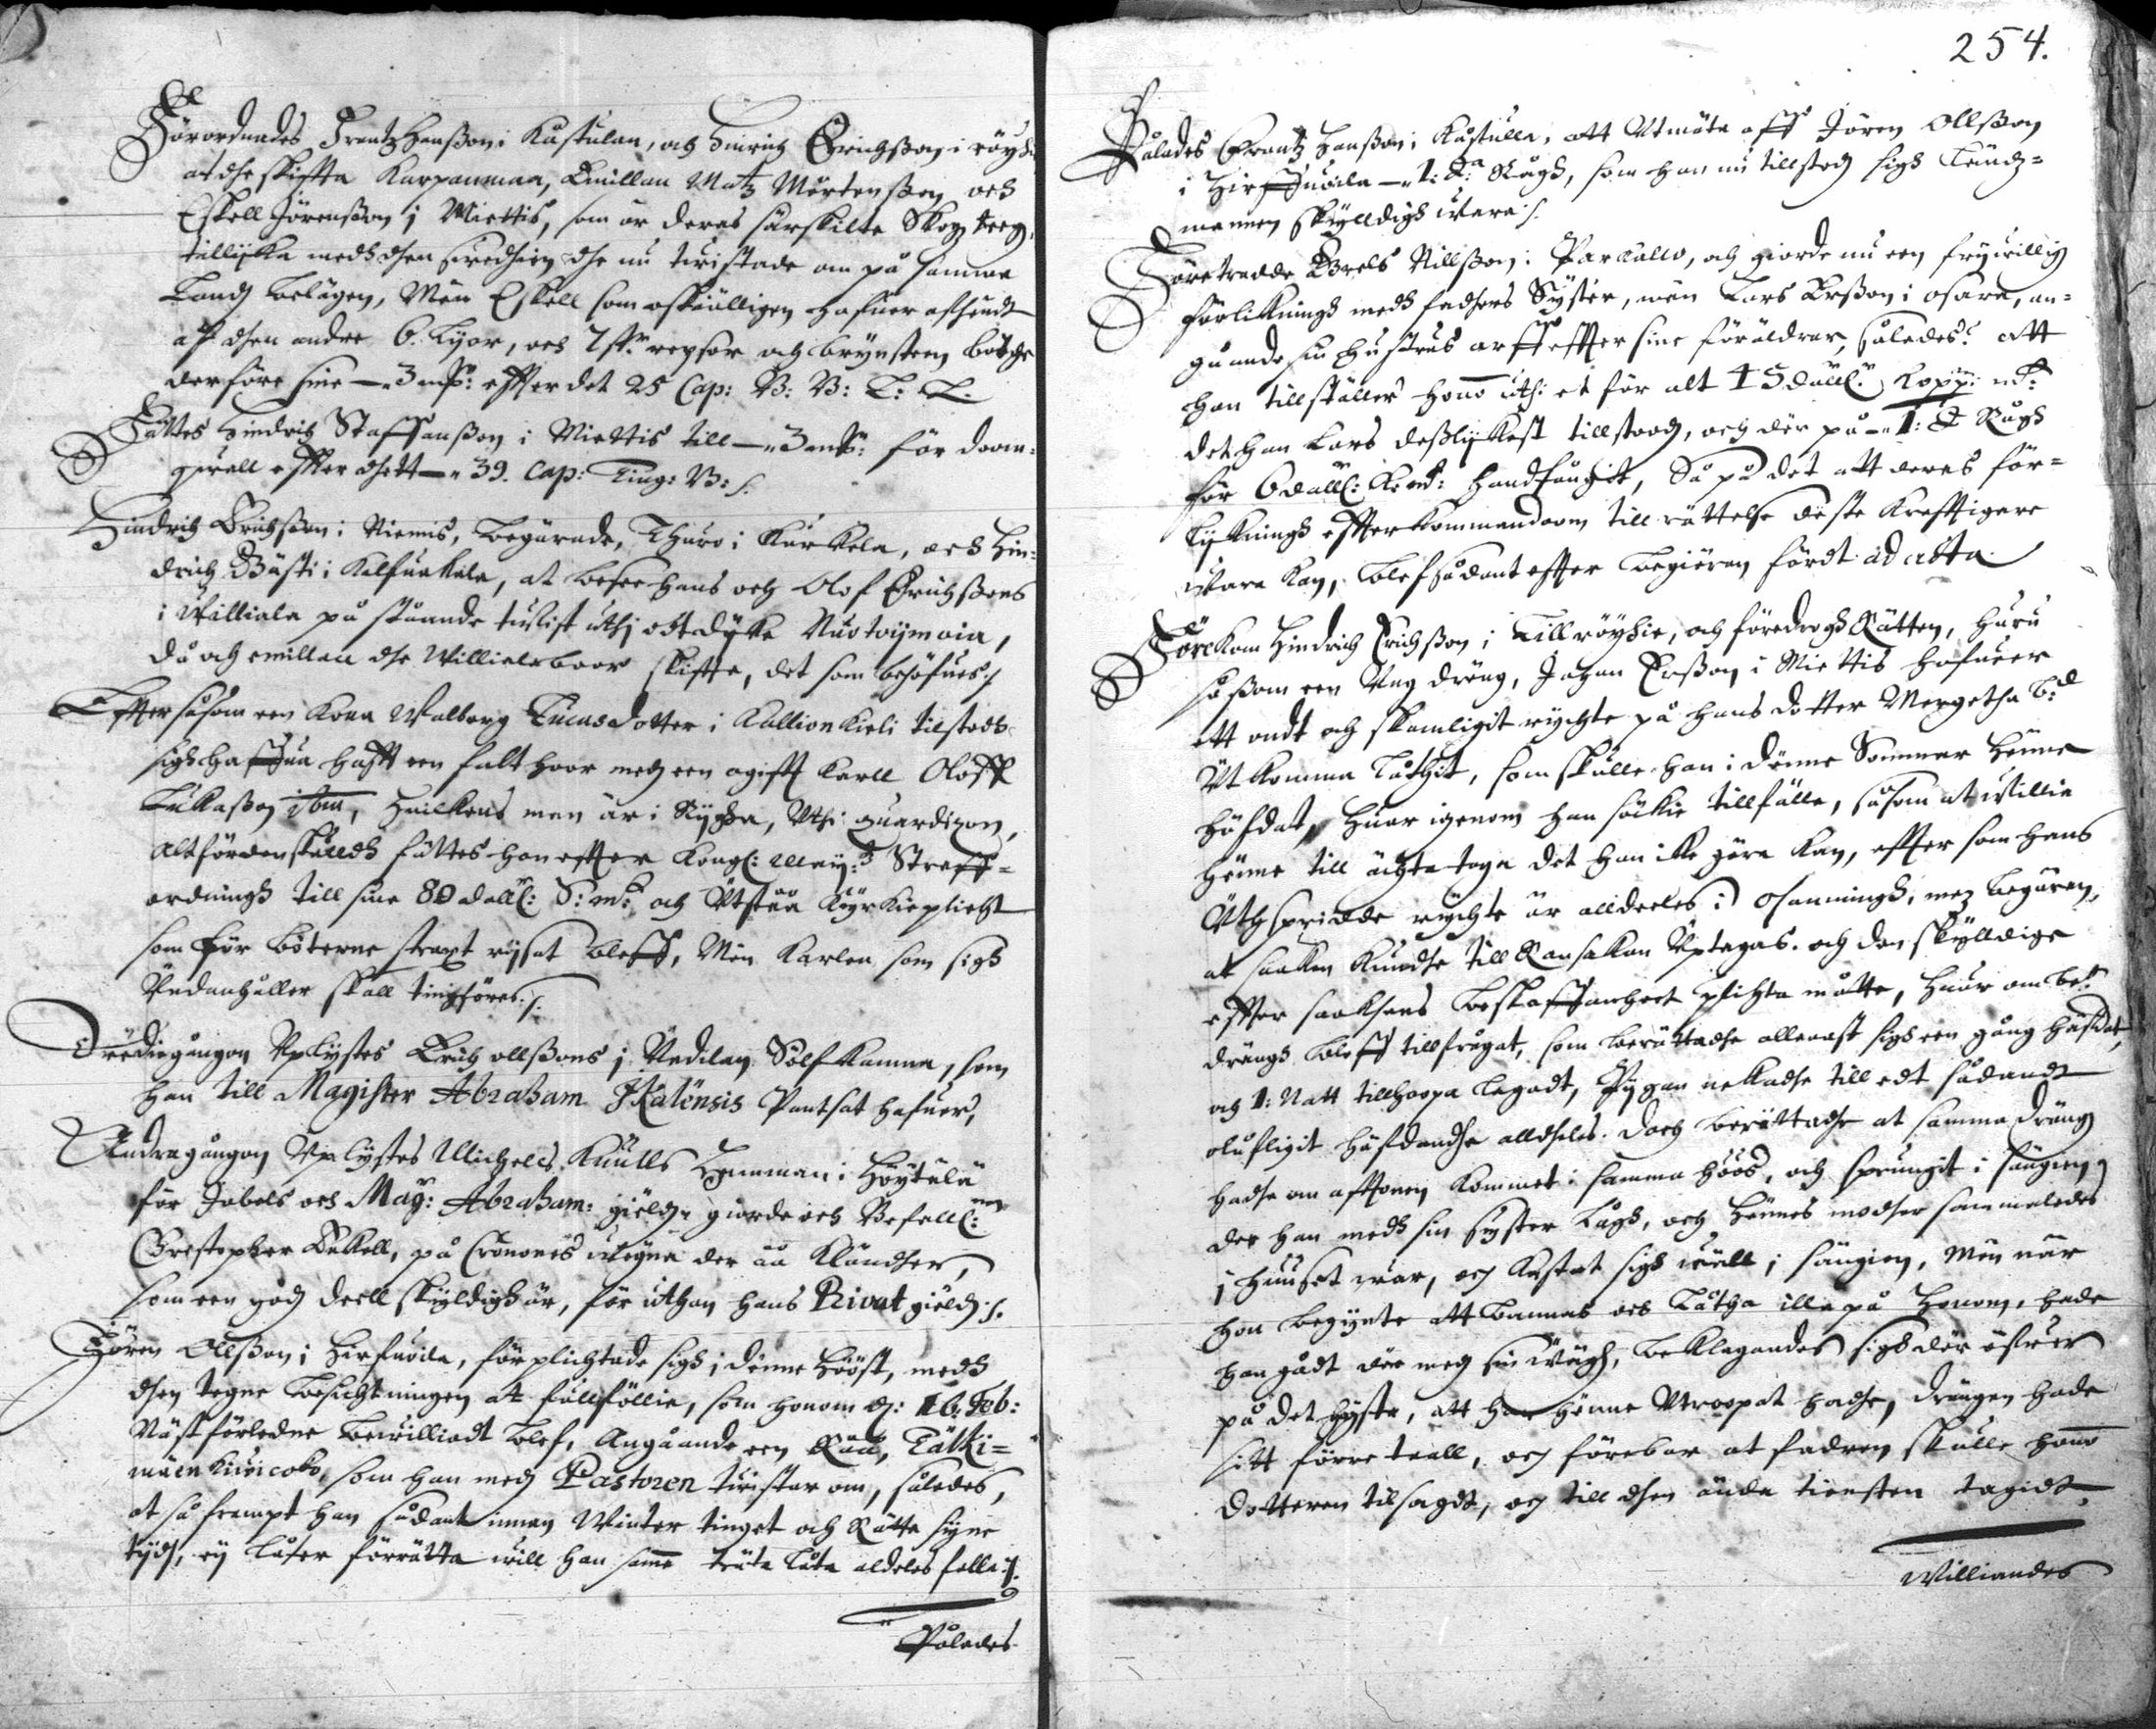 Förordnades Frantz Hanßon i Kustulan, och Hinrich Erichßon i röyh
at dhe skiffta Karpanmaa, Emillan Matz Mårtenßon och
Eskell Jörenßon i Miettis, som är deras särskilte Skogz teeg,
tillijka medh dhen swedhien dhe nu twistade om på samma
Landh belägen, Men Eskell som oskiälligen hafuer afhändt
af dhen andre 6. Lijor, och 7 st. repsor och brynsteen böthe
derföre sine 3 mkr: effter det 25 Cap: B: B: L: L.
Fältes Hindrich Staffanßon i Miettis till 3 mkr: för doom
qwall effter dhett 39. Cap: Ting: B:
Hindrich Erichßon i Niemis, begärade, Thuro i Kurkela, och Hin-
drich Bästi i Kalfuakala, at besee hans och Olof Erichßons
i Williala på stående tuist uthi ett dyke Nuotoijmoia,
då och emillan dhe Williala boar skiffte, det som behöfues
Effter såsom een Kona Walborg Lucasdotter i Kallionkieli tilstodh
sigh haffua hafft een falt hoor medh een ogifft karll Oloff
Lukaßon ibm, Huilkens man är i Rydza, Uthi guardizon,
Altfördenskuldh fältes hon effter Kongl: May:tz Straff-
ordningh till sine 80 dall: S: m: och Utstaa Kyrkieplicht
som för böterne straxt rijsat bleff, Men Karlen som sigh
Undanhåller skall tingföres.
Trediegången Uplystes Erich ollßons i Nedilan Sölfkanna, som
han till Magister Abraham Ikalensis Pantsat hafuer,
Andragången Uplystes Michels Knutts Hemman i Höytälä
för Jabels och Mag:r Abraham: gieldh giorde och Befall:
Christopher Ekell, på Cronones wägna der åå Kländher,
som een godh deell skyldigh är, för uthan hans Privat gieldh.
Jören Ollßon i Hirfuoila, förplichtade sigh i denne Hööst, medh
dhen tegne besichtningen at fullföllie, som honom d: 16: Feb:
Näst förledne bewilliadt blef, Angåande een Råå, Lätki-
mäen kiuicoko, som han medh Pastoren twistar om, således,
at så frampt han sådant innan Winter tinget och Rätta syne
tijdh, ey låter förrätta will han samme träta låta aldeles falla
Pålades

254.
Pålades Frantz Hanßon i Kustulla, att Utmäta aff Jören Ollßon
i Hirffuoila 1: T:a Rågh, som han nu tillstodh sigh Lendz-
mannen skylldigh wara
Företradde Brels Nillßon i Parkallo, och giorde nu een frywillig
förlikningh medh fadhers Syster, män Lars Erßon i osara, an-
gåande sin hustrus arff effter sine föräldrar, således? att
han tillställer honom uthi et för alt 15 dall: Kopp: m:
det han Lars deßlijkest tillstoodh, och der på 1: T Rågh
för 6 dall: K: m: handfångit, Så på det att deras för-
lijkningh effterkommandom till rättelse deste krafftigare
wara kan, blef sådant effter begieran fördt ad acta.
Förekom Hindrich Erichßon i Tillröyhie, och föredrogh Rätten, huru
såßom een Ung dräng, Johan Erßon i Miettis hafuer
ett ondt och skamligit ryckte på hans dotter Mergetha b:d
Utkomma låthit, som skulle han i denne Sommar henne
höfdat, Huar igenom han sökie tillfälle, såsom at willia
henne till ächta taga det han icke göra kan, effter som hans
Uthspridde ryckte är alldeeles i osanningh, mz begären,
at saaken kundhe till Ransakan Uptagas. och den skylldige
effter saaksens beskaffanheet plichta måtte, Huar om be:te
drängh bleff tillfrågat, som berättadhe allenast sigh een gång häfdat,
och 1: Natt tillhoopa legadt, Pigan nekadhe till edt sådandt
olofligit häfdandhe alldheles. doch berättadhe at samma dräng
hadhe om afftonen kommet i samma hoos, och sprungit i sängien
der han medh sin syster lågh, och hennes modher sammaledes
i huuset war, och kastat sigh wäll i sängien, Men när
hon begynte att bannas och låtha illa på honom, hade
han gådt der medh sin wägh, beklagandes sigh der öfwer
på det hyste, att han henne Utroopat hadhe, drängen hade
sitt förre taall, och förebar at fadren skulle honom
dotteren tilsagdt, och till dhen ända tiensten tagidt
Williandes